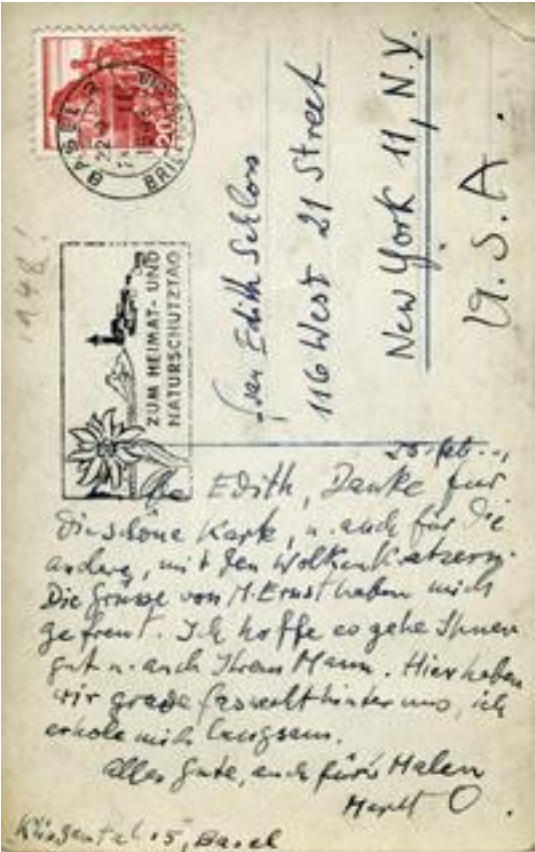 BASEL 2
BRIEF
20
ZUM HEIMAT- UND
NATURSCHUTZTAG
1948!
Frau Edith Schloss
116 West 21 Street
New York 11, N.Y.
U.S.A.
25. Feb.
Liebe Edith, Danke für
die schöne Karte, u. auch für die
andere, mit den Wolkenkratzern.
Die Grüsse von M. Ernst haben mich
gefreut. Ich hoffe es gehe Ihnen
gut u. auch Ihrem Mann. Hier haben
wir grade Fasnacht hinter uns, ich
erhole mich langsam.
Alles Gute, auch fürs Malen
Meret O.
Klingental 15, Basel